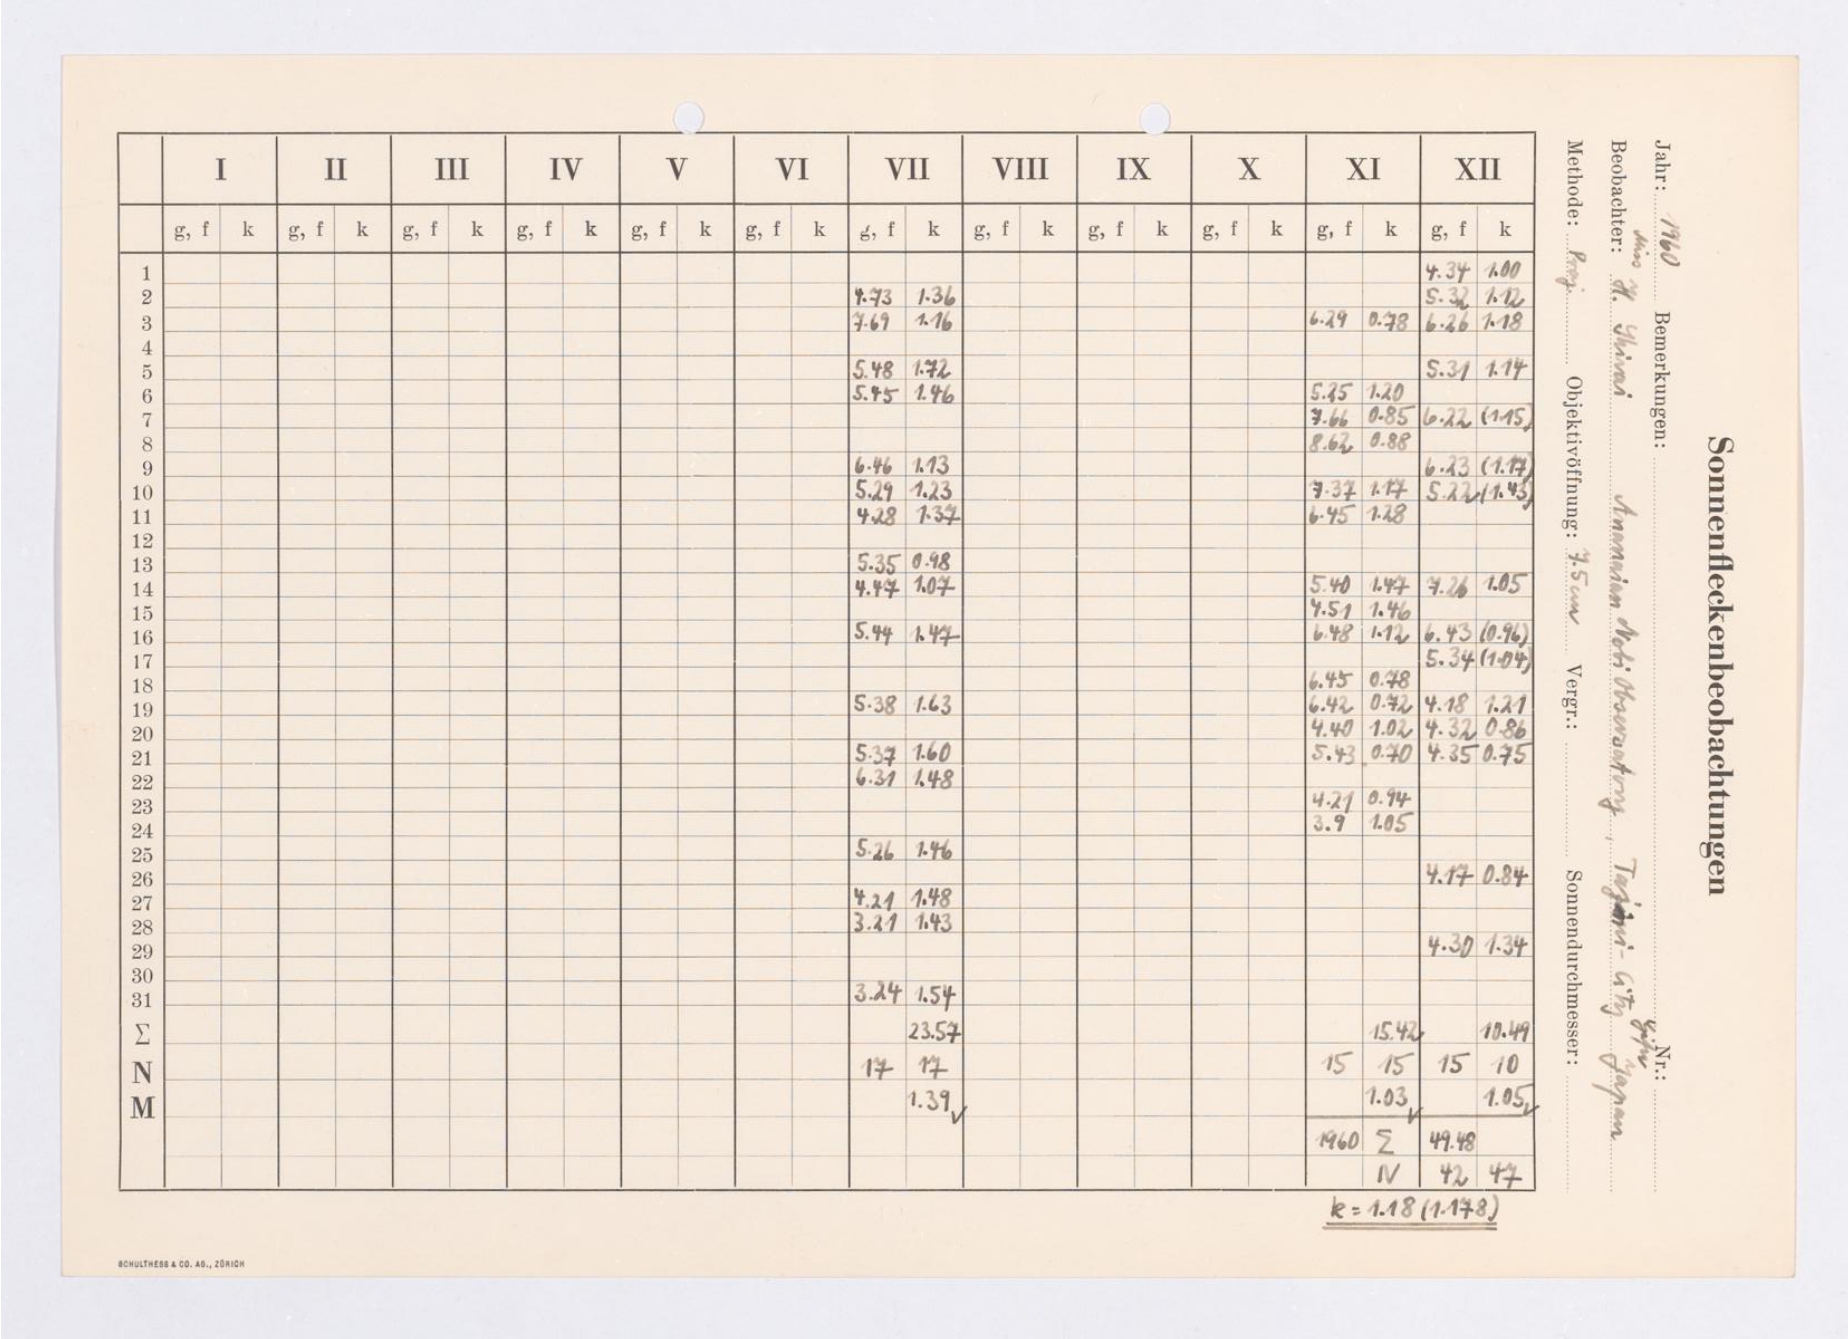 Sonnenfleckenbeobachtungen
Jahr: 1960 Bemerkungen: Nr.:
Miss Gifu
Beobachter: H. Shirai Observatory, Tajimi-City Japan
Methode: Proj Objektivöffnung: 7.5 cm Vergr.: Sonnendurchmesser:
I II III IV V VI VII VIII IX X XI XII
g, f k g, f k g, f k g, f k g, f k g, f k g, f k g, f k g, f k g, f k g, f k g, f k
1 4.34 1.00
2 4.73 1.36 5.32 1.12
3 7.69 1.16 6.29 0.78 6.26 1.18
4
5 5.48 1.72 5.31 1.14
6 5.45 1.46 5.25 1.20
7 7.66 0.85 6.22 (1.15)
8 8.62 0.88
9 6.46 1.13 6.23 (1.17)
10 5.29 1.23 7.37 1.17 5.22 (1.43)
11 4.28 1.37 6.45 1.28
12
13 5.35 0.98
14 4.47 1.07 5.40 1.47 7.26 1.05
15 4.51 1.46
16 5.44 1.47 6.48 1.12 6.43 (0.96)
17 5.34 (1.04)
18 6.45 0.78
19 5.38 1.63 6.42 0.72 4.18 1.21
20 4.40 1.02 4.32 0.86
21 5.37 1.60 5.43 0.70 4.35 0.75
22 6.31 1.48
23 4.21 0.94
24 3.9 1.05
25 5.26 1.46
26 4.17 0.84
27 4.21 1.48
28 3.21 1.43
29 4.30 1.34
30
31 3.24 1.54
Σ 23.57 15.42 10.49
N 17 17 15 15 15 10
M 1.39 ✓ 1.03 ✓ 1.05 ✓
1960 Σ 49.48
N 42 47
k = 1.18 (1.178)
SCHULTHESS & CO. AG., ZÜRICH